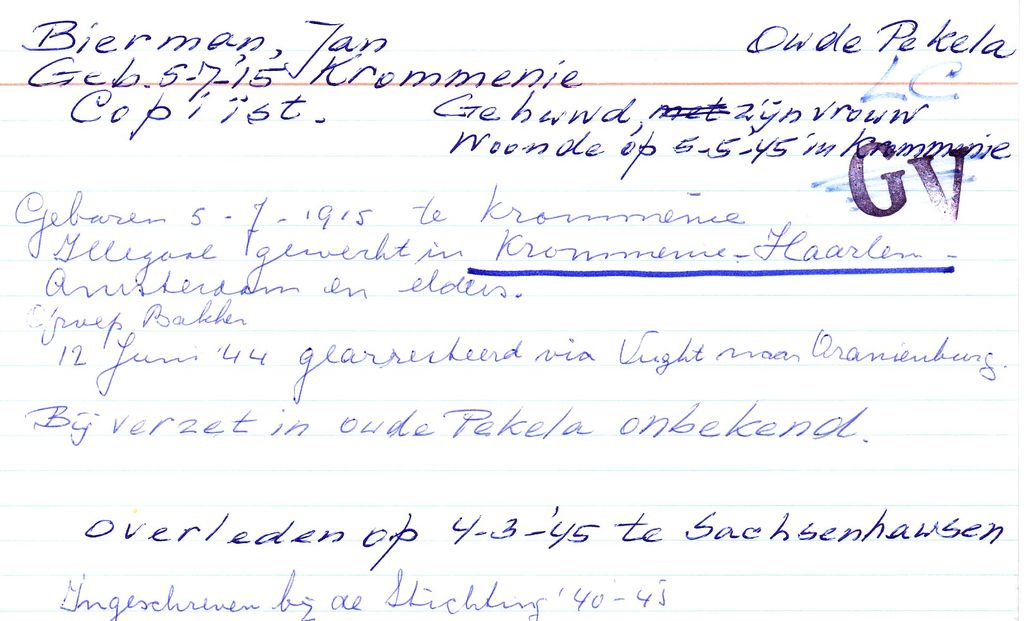 Bierman, Jan Oude Pekela
Geb. 5-7-'15 Krommenie LC
Copiïst. Gehuwd, met zijn vrouw
Woonde op 5-5-'45 in Krommenie
GV
Geboren 5-7-1915 te Krommenie
Illegaal gewerkt in Krommenie-Haarlem-
Amsterdam en elders.
Groep Bakker
12 Juni '44 gearresteerd via Vught naar Oranienburg.
Bij verzet in oude Pekela onbekend.
Overleden op 4-3-'45 te Sachsenhausen
Ingeschreven bij de Stichting '40-45